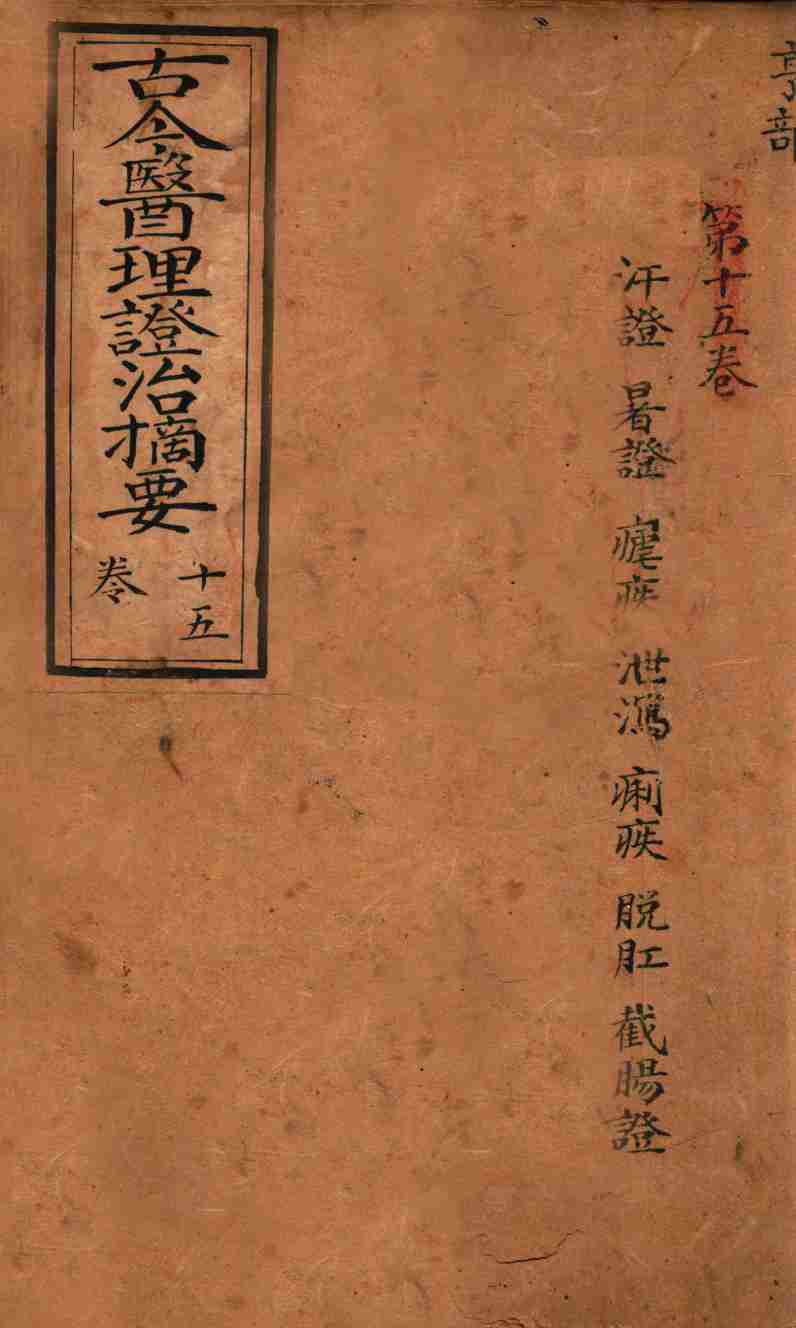 亨部
第十五卷
汗證 暑證 瘧疾 泄瀉 痢疾 脫肛 截腸證
古今醫理證治摘要
十五
卷